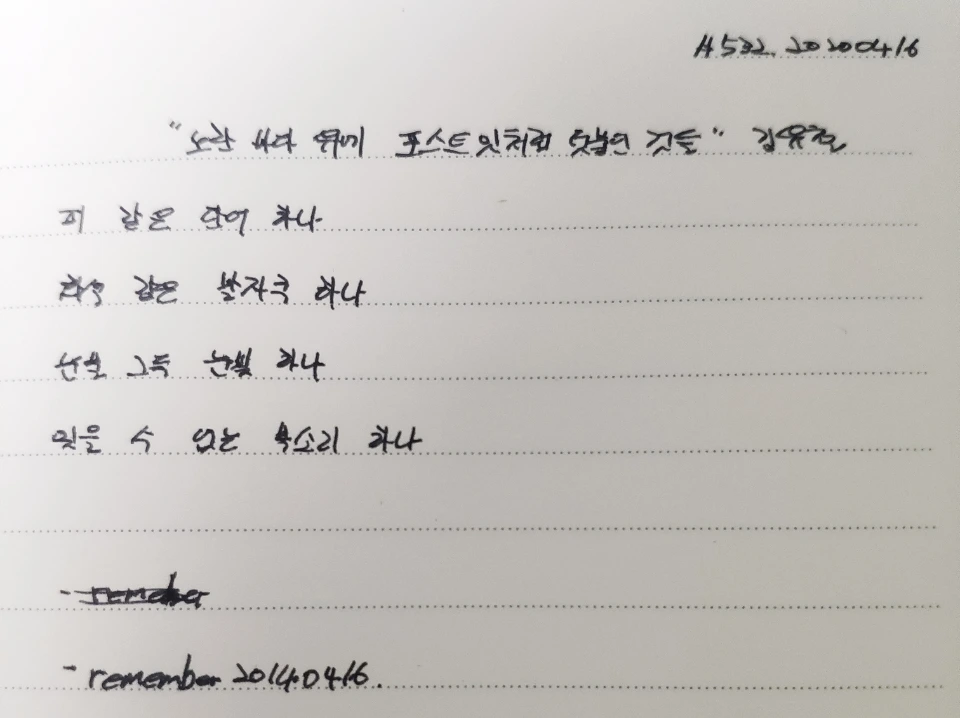 A532. 20200416
"노란 바다 위에 포스트잇처럼 덧붙인 것들" 김유철
피 같은 단어 하나
화석 같은 발자국 하나
눈물 그득 눈빛 하나
잊을 수 없는 목소리 하나
- remember 20140416.